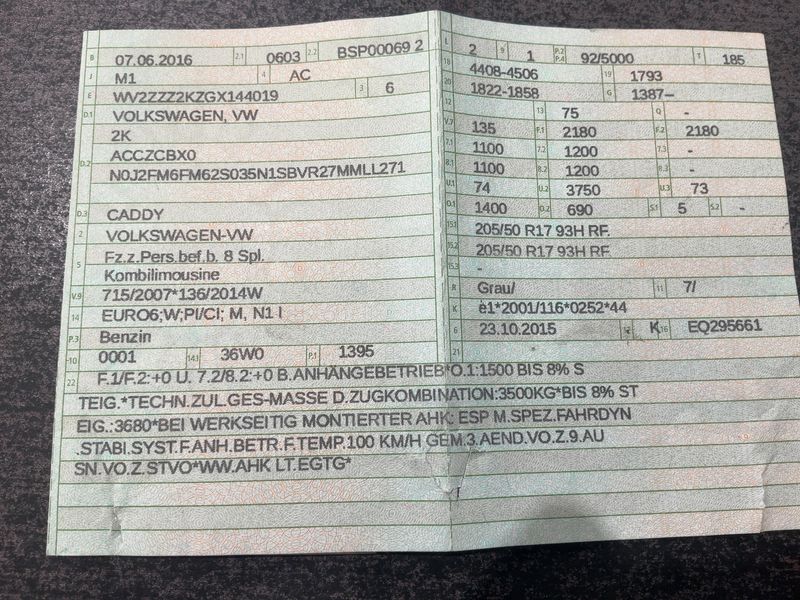 B 07.06.2016 2.1 0603 2.2 BSP00069 2
J M1 4 AC
E WV2ZZZ2KZGX144019 3 6
D.1 VOLKSWAGEN, VW
2K
D.2 ACCZCBX0
N0J2FM6FM62S035N1SBVR27MMLL271
D.3 CADDY
2 VOLKSWAGEN-VW
5 Fz.z.Pers.bef.b. 8 Spl.
Kombilimousine
V.9 715/2007*136/2014W
14 EURO6;W;PI/CI; M, N1 I
P.3 Benzin
10 0001 14.1 36W0 P.1 1395
L 2 9 1 P.2 P.4 92/5000 T 185
18 4408-4506 19 1793
20 1822-1858 G 1387–
12 13 75 Q -
V.7 135 F.1 2180 F.2 2180
7.1 1100 7.2 1200 7.3 -
8.1 1100 8.2 1200 8.3 -
U.1 74 U.2 3750 U.3 73
O.1 1400 O.2 690 S.1 5 S.2 -
15.1 205/50 R17 93H RF.
15.2 205/50 R17 93H RF.
15.3 -
R Grau/ 11 7/
K è1*2001/116*0252*44
6 23.10.2015 K 16 EQ295661
21
22 F.1/F.2:+0 U. 7.2/8.2:+0 B.ANHÄNGEBETRIEB*O.1:1500 BIS 8% S
TEIG.*TECHN.ZUL.GES-MASSE D.ZUGKOMBINATION:3500KG*BIS 8% ST
EIG.:3680*BEI WERKSEITIG MONTIERTER AHK: ESP M.SPEZ.FAHRDYN
.STABI.SYST.F.ANH.BETR.F.TEMP.100 KM/H GEM.3.AEND.VO.Z.9.AU
SN.VO.Z.STVO*WW.AHK LT.EGTG*